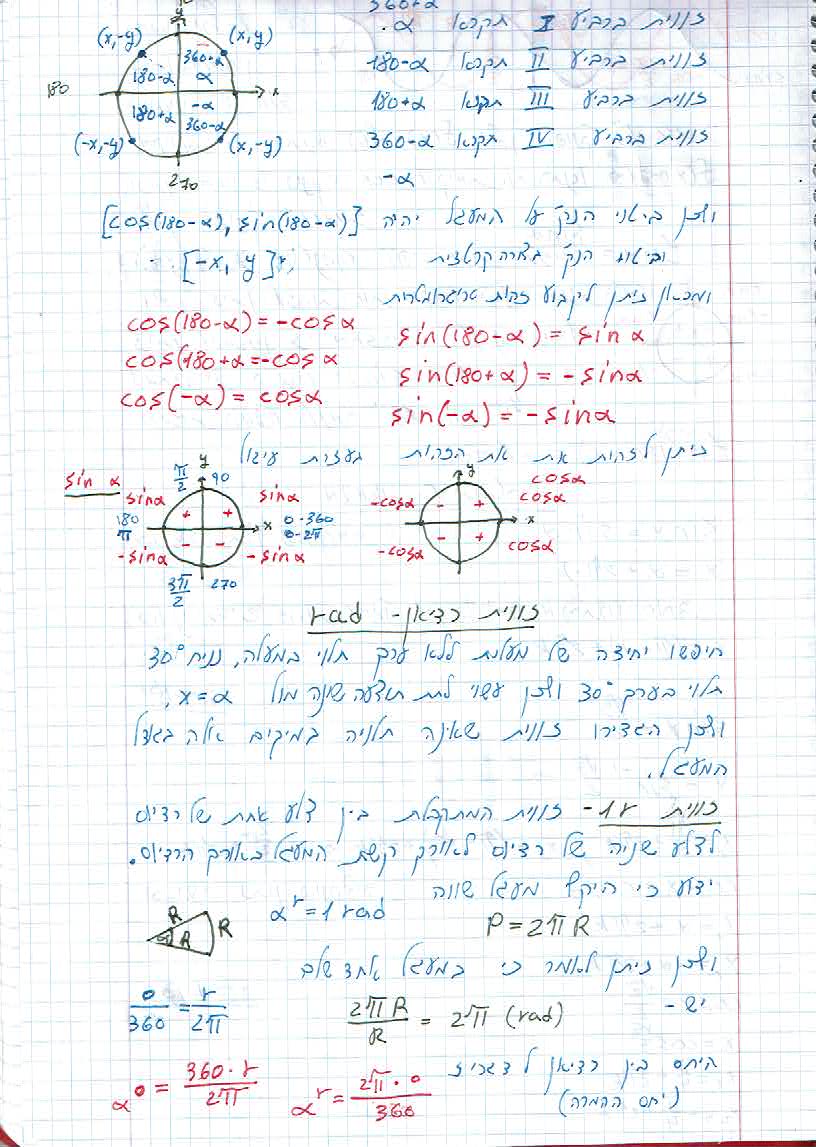 360+α
זווית ברביע I תקרא α.
זווית ברביע II תקרא 180-α
זווית ברביע III תקרא 180+α
זווית ברביע IV תקרא 360-α
-α
y
(x,-y)
(x,y)
180-α
360+α
α
180
x
180+α
-α
360-α
(-x,-y)
(x,-y)
270
ולכן ביטוי הנק' על המעגל יהיה [cos(180-α), sin(180-α)]
וביטוי הנק' בצורה קרטזית [-x, y]
ומכאן ניתן לקבוע זהות טריגונומטרית
cos(180-α) = -cosα
sin(180-α) = sinα
cos(180+α = -cosα
sin(180+α) = -sinα
cos(-α) = cosα
sin(-α) = -sinα
ניתן לזהות את את הזהות בעזרת עיגול
sin α
π/2
y
90
sinα
sinα
+
+
180
π
x
0-360
0-2π
-sinα
-
-
-sinα
3π/2
270
y
cosα
-cosα
-
+
cosα
x
-cosα
-
+
cosα
זווית רדיאן - rad
חיפשו יחידה של מעלות ללא ערך תלוי במעלה, נניח 30°
תלוי בערך 30° ולכן עשוי לתת תוצאה שונה מול x=α,
ולכן הגדירו זווית שאינה תלויה במיקום אלא בגודל
המעגל.
זווית 1r - זווית המתקבלת בין צלע אחת של רדיוס
לצלע שניה של רדיוס לאורך קשת המעגל באורך הרדיוס.
ידוע כי היקף מעגל שווה
P = 2πR
α^r = 1 rad
R
R
R
ולכן ניתן לאמר כי במעגל אחד שלם
יש -
2πR/R = 2π (rad)
o/360 = r/2π
היחס בין רדיאן לדגריז
(יחס ההמרה)
α^o = 360·r/2π
α^r = 2π·o/360